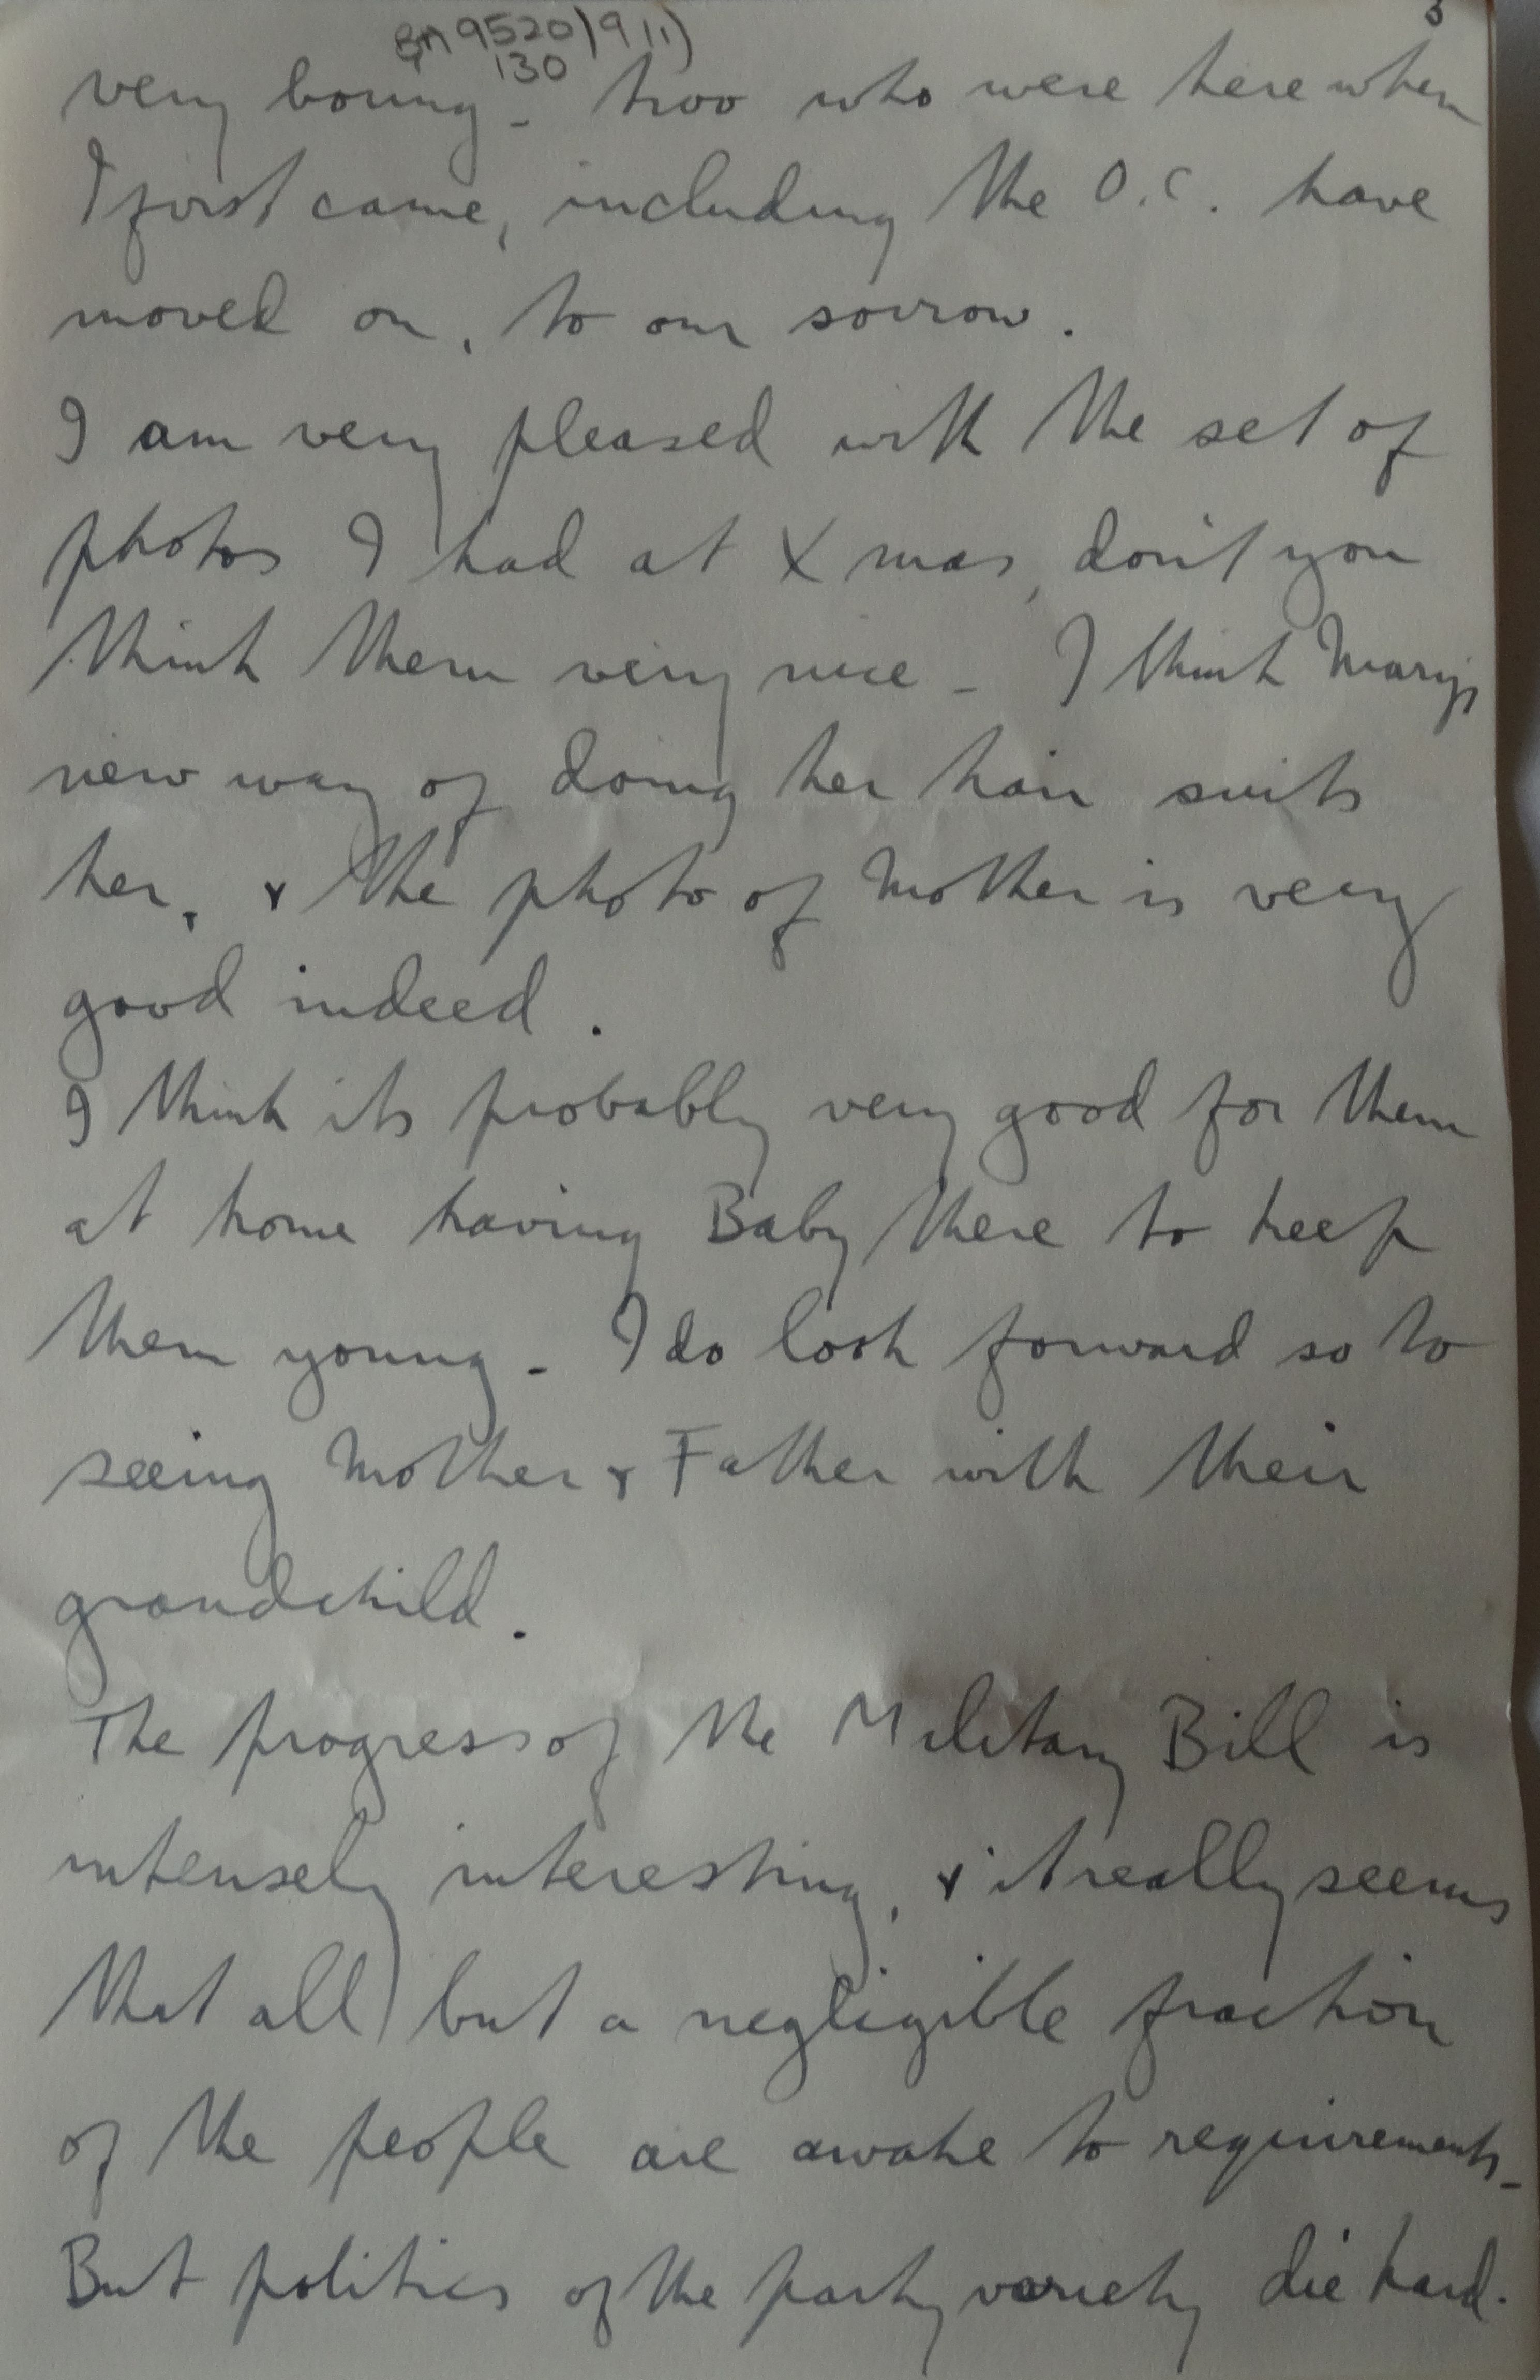 3
9520/9(1)
130
very boring - two who were here when
I first came, including the O.C. have
moved on, to our sorrow.
I am very pleased with the set of
photos I had at Xmas, don't you
think them very nice - I think Mary's
new way of doing her hair suits
her, & the photo of Mother is very
good indeed.
I think its probably very good for them
at home having Baby there to keep
them young - I do look forward so to
seeing Mother & Father with their
grandchild.
The progress of the Military Bill is
intensely interesting, & it really seems
that all but a negligible fraction
of the people are awake to requirements -
But politics of the party variety die hard.